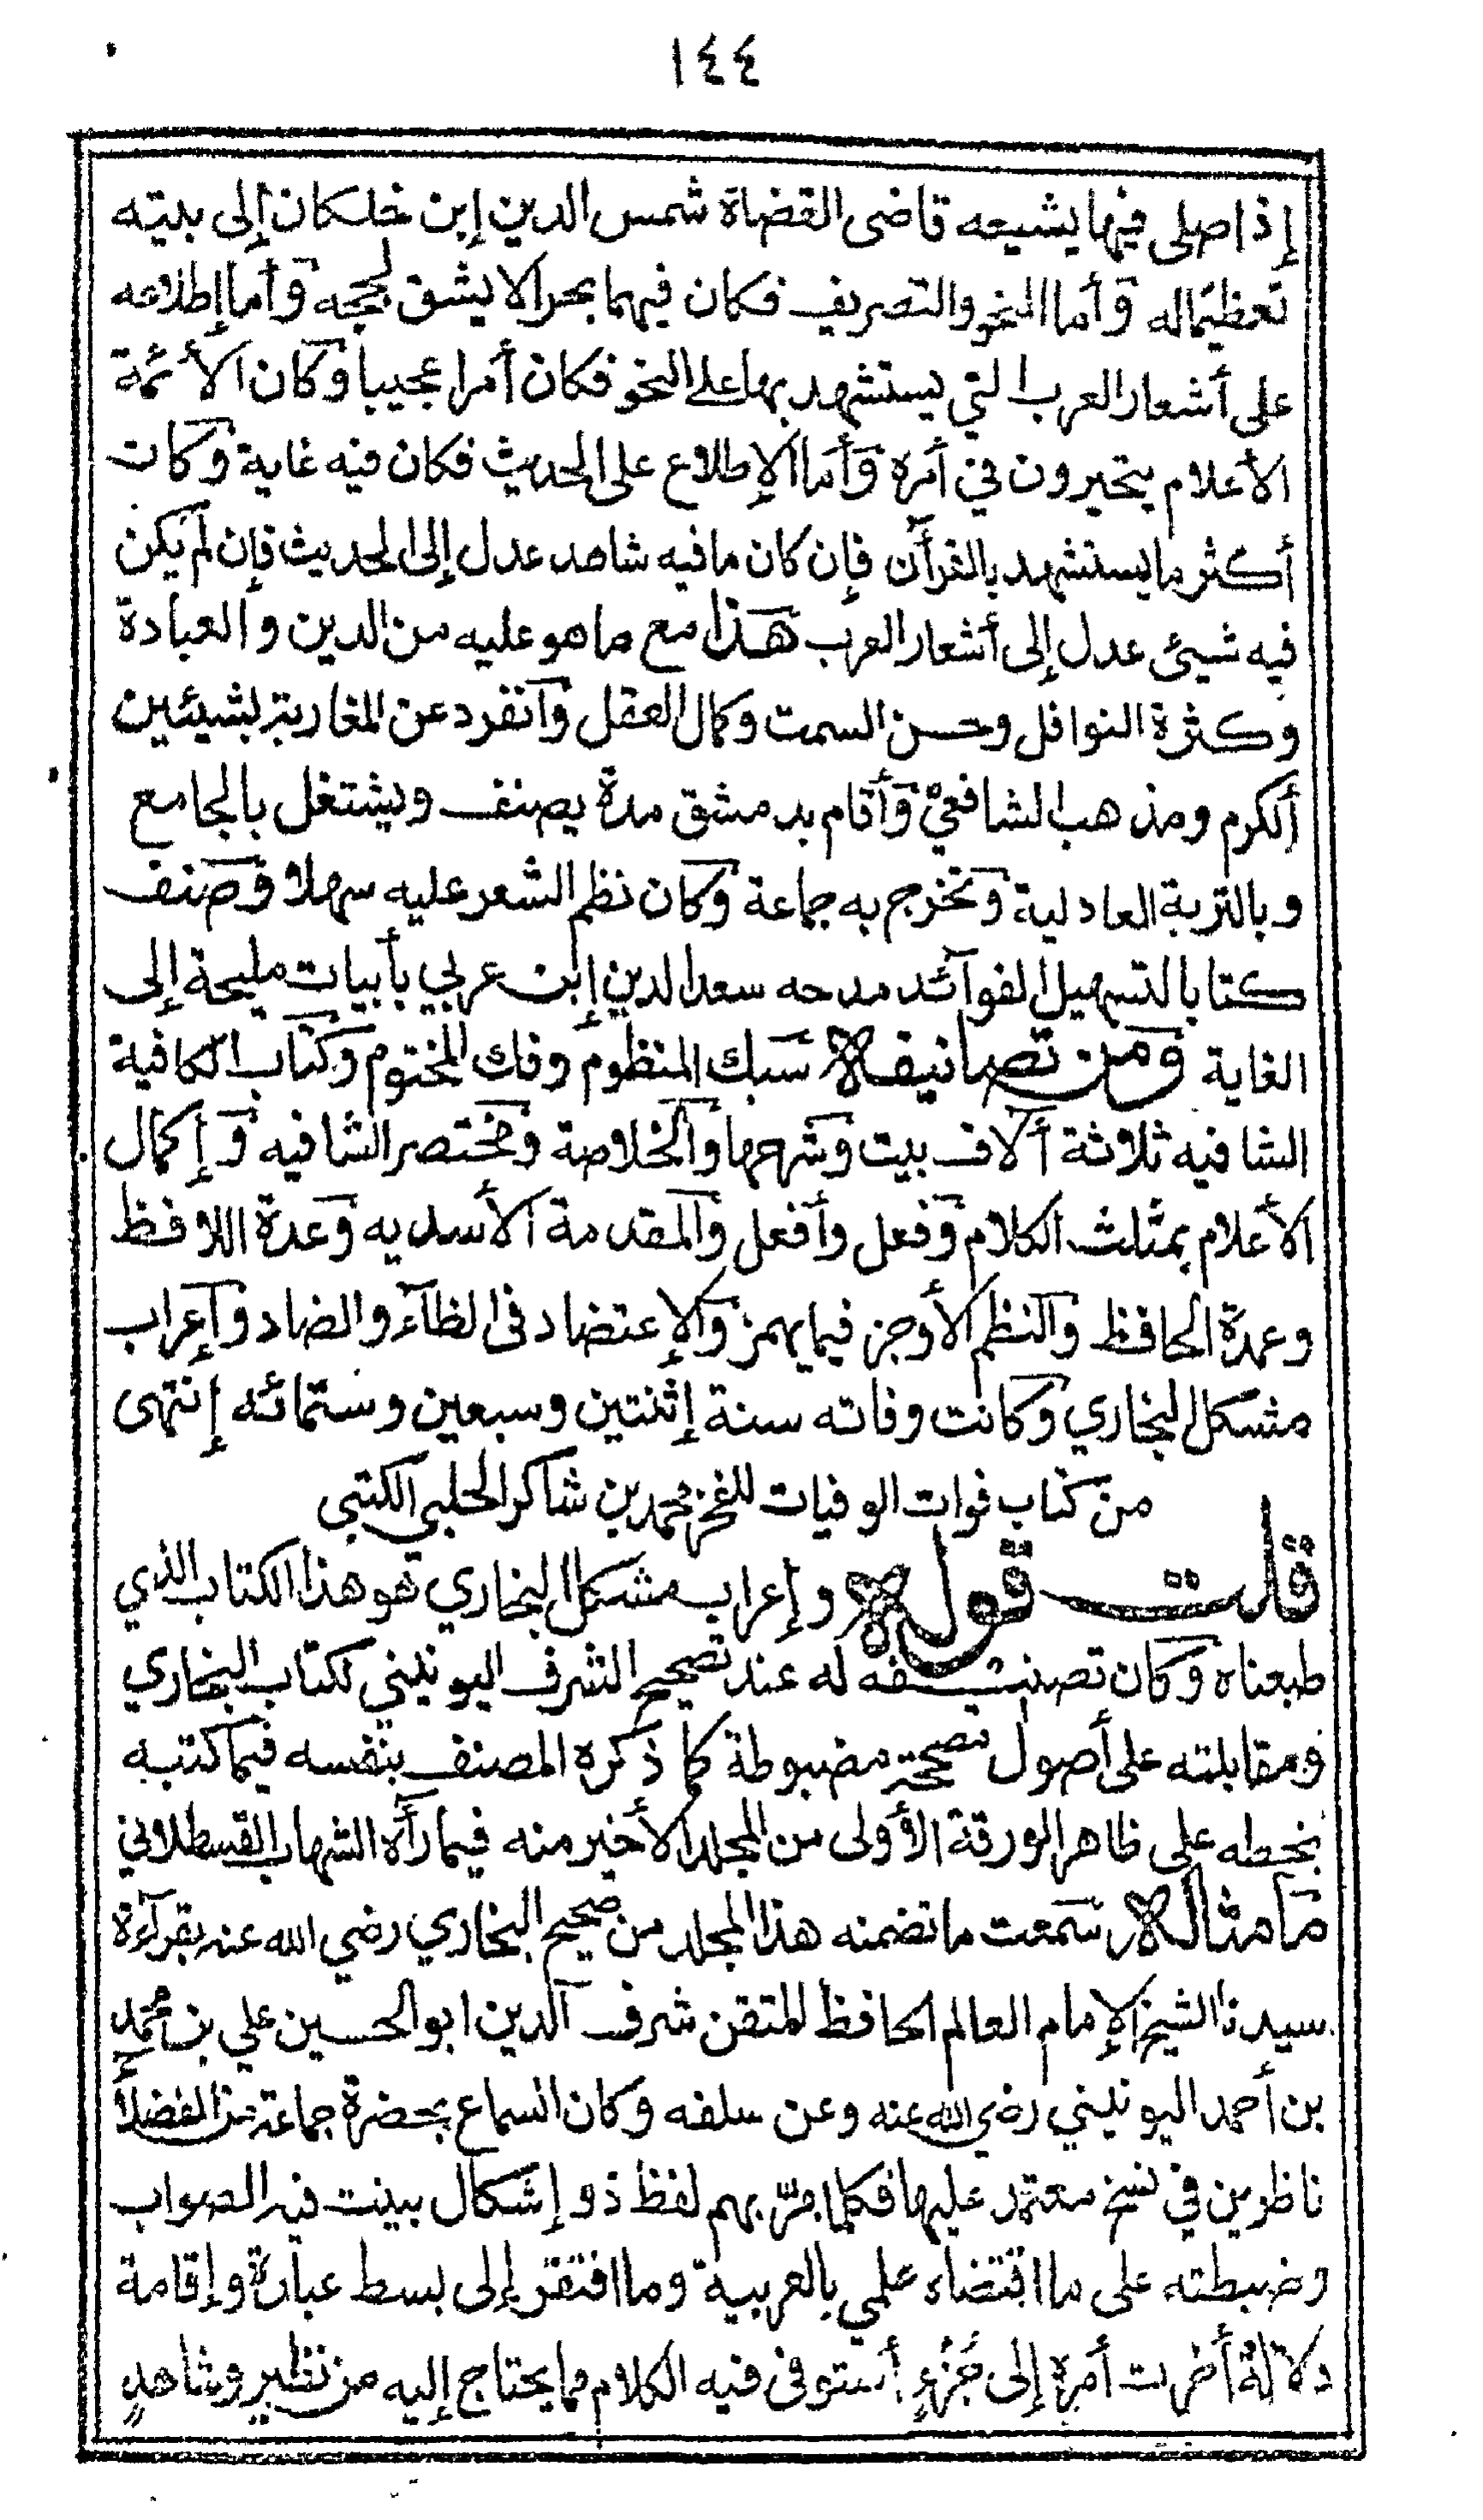 ١٤٤
إذا صلى فيها يشيعه قاضى القضاة شمس الدين إبن خلكان إلى بيته
تعظيما له وأما النحو والتصريف فكان فيهما بحرا لا يشق لججه وأما إطلاعه
على أشعار العرب التي يستشهد بها على النحو فكان أمرا عجيبا وكان الأئمة
الأعلام يتحيرون في أمره وأما الإطلاع على الحديث فكان فيه غاية وكان
أكثر ما يستشهد بالقرآن فإن كان ما فيه شاهد عدل إلى الحديث فإن لم يكن
فيه شيئ عدل إلى أشعار العرب هذا مع ما هو عليه من الدين والعبادة
وكثرة النوافل وحسن السمت وكمال العقل وانفرد عن المغاربة بشيئين
ألكرم ومذهب الشافعي وأقام بدمشق مدة يصنف ويشتغل بالجامع
وبالتربة العادلية وتخرج به جماعة وكان نظم الشعر عليه سهلا وصنف
كتاب التسهيل الفوآئد مدحه سعد الدين إبن عربي بأبيات مليحة إلى
الغاية ومن تصانيفه سبك المنظوم وفك المختوم وكتاب الكافية
الشافيه ثلاثة ألاف بيت وشرحها والخلاصة ومختصر الشافيه وإكمال
الأعلام بمثلث الكلام وفعل وأفعل والمقدمة الأسديه وعدة اللافظ
وعمدة الحافظ والنظم الأوجز فيما يهمز والإعتضاد فى الظآء والضاد وإعراب
مشكل البخاري وكانت وفاته سنة إثنتين وسبعين وستمائه إنتهى
من كتاب فوات الوفيات للفخر محمد بن شاكر الحلبي الكتبي
قلت قوله وإعراب مشكل البخاري هو هذا الكتاب الذي
طبعناه وكان تصنيفه له عند تصحيح الشرف اليونيني لكتاب البخاري
ومقابلته على أصول مصححة مضبوطة كما ذكره المصنف بنفسه فيما كتبه
بخطه على ظاهر الورقة الأولى من المجلد الأخير منه فيما رآه الشهاب القسطلاني
ما مثاله سمعت ما تضمنه هذا المجلد من صحيح البخاري رضي الله عنه بقرآءة
سيدنا الشيخ الإمام العالم الحافظ المتقن شرف الدين ابو الحسين علي بن محمد
بن أحمد اليونيني رضي الله عنه وعن سلفه وكان السماع بحضرة جماعة من الفضلأ
ناظرين في نسخ معتمد عليها فكلما مرّ بهم لفظ ذو إشكال بينت فيه الصواب
وضبطته على ما اقتضاه علمي بالعربية وما افتقر إلى بسط عبارة وإقامة
دلالة أخرت أمره إلى جزء أستوفى فيه الكلام مما يحتاج إليه من نظير وشاهد